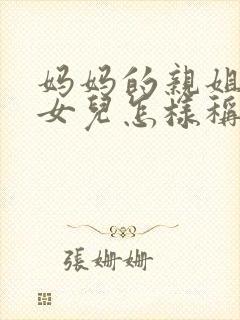 妈妈的親姐
女兒怎樣稱
張姍姍